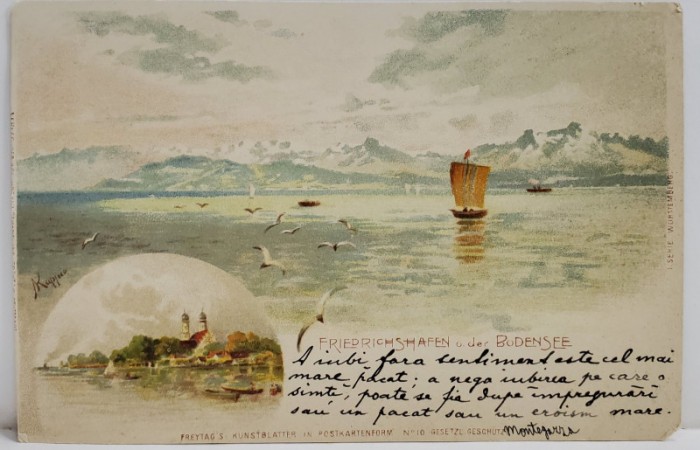 I SERIE "WÜRTTEMBERG"
FRIEDRICHSHAFEN u. der BODENSEE
A iubi fara sentiment este cel mai
mare păcat; a nega iubirea pe care o
simte, poate se fie dupe impregurări
sau un pacat sau un eroism mare.
Montegazza
FREYTAG'S KUNSTBLÄTTER IN POSTKARTENFORM No 10 GESETZL. GESCHÜTZT